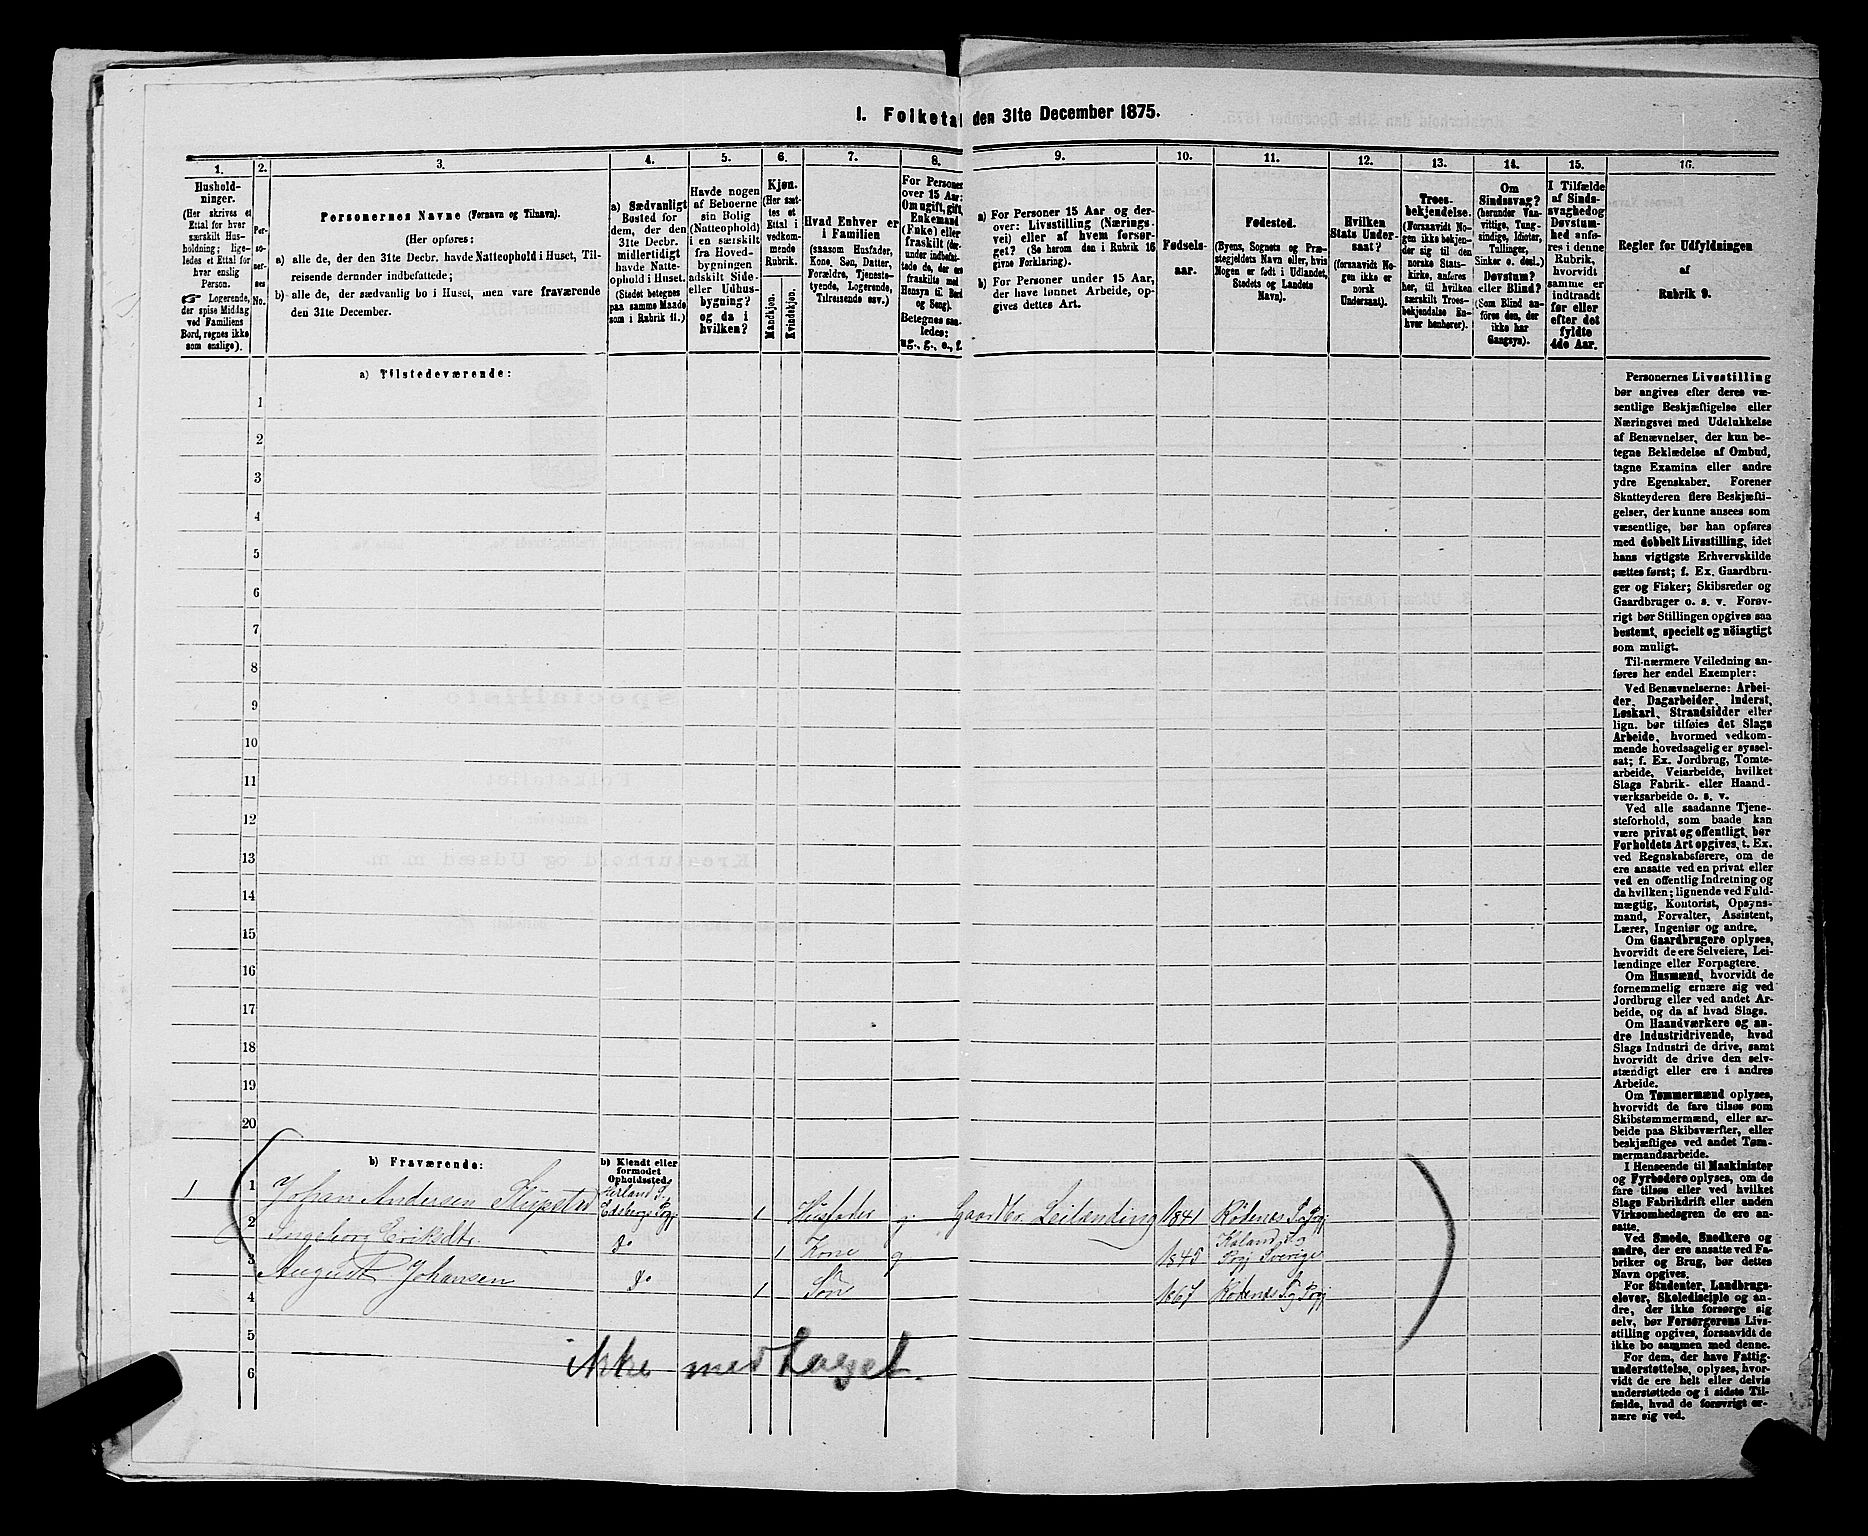 I. Folketal den 31te December 1875.
1.
Hushold-
ninger.
(Her skrives et
Ettal for hver
særskilt Hus-
holdning; lige-
ledes et Ettal for
hver enslig
Person.
☞ Logerende,
der spise Middag
ved Familiens
Bord, regnes ikke
som enslige).
2.
Per-
so-
ner-
nes
No.
3.
Personernes Navne (Fornavn og Tilnavn).
(Her opføres:
a) alle de, der den 31te Decbr. havde Natteophold i Huset, Til-
reisende derunder indbefattede;
b) alle de, der sædvanlig bo i Huset, men vare fraværende
den 31te December.
4.
a) Sædvanligt
Bosted for
dem, der den
31te Decbr.
midlertidigt
havde Natte-
ophold i Huset.
(Stedet betegnes
paa samme Maade
som i Rubrik 11.)
5.
Havde nogen
af Beboerne
sin Bolig
(Natteophold)
i en særskilt
fra Hoved-
bygningen
adskilt Side-
eller Udhus-
bygning?
og da i
hvilken?
6.
Kjøn.
(Her sæt-
tes et
Ettal i
vedkom-
mende
Rubrik.
Mandkjøn.
Kvindekjøn.
7.
Hvad Enhver er
i Familien
(saasom Husfader,
Kone, Søn, Datter,
Forældre, Tjeneste-
tyende, Logerende,
Tilreisende osv.)
8.
For Personer
over 15 Aar:
Om ugift, gift,
Enkemand
(Enke) eller
fraskilt (der-
under indbefat-
tede de, der ere
fraskilte med
Hensyn til Bord
og Seng).
Betegnes saa-
ledes:
ug., g., e., f.
9.
a) For Personer 15 Aar og der-
over: Livsstilling (Nærings-
vei) eller af hvem forsør-
get? (Se herom den i Rubrik 16
givne Forklaring).
b) For Personer under 15 Aar,
der have lønnet Arbeide, op-
gives dettes Art.
10.
Fødsels-
aar.
11.
Fødested.
(Byens, Sognets og Præ-
stegjeldets Navn eller, hvis
Nogen er født i Udlandet,
Stedets og Landets
Navn).
12.
Hvilken
Stats Under-
saat?
(forsaavidt No-
gen ikke er
norsk
Undersaat).
13.
Troes-
bekjendelse.
(Forsaavidt No-
gen ikke bekjen-
der sig til den
norske Stats-
kirke, anføres
her, til hvilken
særskilt Troes-
bekjendelse En-
hver henhører).
14.
Om
Sindssvag?
(herunder Van-
vittige, Tung-
sindige, Idioter,
Tullinger,
Sinker o. desl.)
Døvstum?
eller Blind?
(Som Blind an-
føres den, der
ikke har
Gangsyn).
15.
I Tilfælde
af Sinds-
svaghed og
Døvstum-
hed anfø-
res i denne
Rubrik,
hvorvidt
samme er
indtraadt
før eller
efter det
fyldte
4de Aar.
16.
Regler for Udfyldningen
af
Rubrik 9.
a) Tilstedeværende:
1
2
3
4
5
6
7
8
9
10
11
12
13
14
15
16
17
18
19
20
b) Fraværende:
b) Kjendt eller
formodet
Opholdssted.
1 1 Johan Andersen 1 Husfader g Gaardbr. Leilænding 1841 Rødenæs
2 Ingeborg Eriksdtr. do 1 Kone g 1845 Sverige
3 August Johansen do 1 Søn 1867 Rødenæs
4
5
6
ikke medtaget.
Personernes Livsstilling
bør angives efter deres væ-
sentlige Beskjæftigelse eller
Næringsvei med Udelukkelse
af Benævnelser, der kun be-
tegne Beklædelse af Ombud,
tagne Examina eller andre
ydre Egenskaber. Forener
Skatteyderen flere Beskjæfti-
gelser, der kunne ansees som
væsentlige, bør han opføres
med dobbelt Livsstilling, idet
hans vigtigste Erhvervskilde
sættes først; f. Ex. Gaardbru-
ger og Fisker; Skibsreder og
Gaardbruger o. s. v. Forøv-
rigt bør Stillingen opgives saa
bestemt, specielt og nöiagtigt
som muligt.
Til nærmere Veiledning an-
føres her endel Exempler:
Ved Benævnelserne: Arbei-
der, Dagarbeider, Inderst,
Løskarl, Strandsidder eller
lign. bør tilføies det Slags
Arbeide, hvormed vedkom-
mende hovedsagelig er syssel-
sat; f. Ex. Jordbrug, Tomte-
arbeide, Veiarbeide, hvilket
Slags Fabrik- eller Haand-
værksarbeide o. s. v.
Ved alle saadanne Tjene-
steforhold, som baade kan
være privat og offentligt, bør
Forholdets Art opgives, t. Ex.
ved Regnskabsførere, om de
ere ansatte ved en privat eller
ved en offentlig Indretning og
da hvilken; lignende ved Fuld-
mægtig, Kontorist, Opsyns-
mand, Forvalter, Assistent,
Lærer, Ingeniør og andre.
Om Gaardbrugere oplyses,
hvorvidt de ere Selveiere, Lei-
lændinge eller Forpagtere.
Om Husmænd, hvorvidt de
fornemmelig ernære sig ved
Jordbrug eller ved andet Ar-
beide, og da af hvad Slags.
Om Haandværkere og an-
dre Industridrivende, hvad
Slags Industri de drive, samt
hvorvidt de drive den selv-
stændigt eller ere i andres
Arbeide.
Om Tømmermænd oplyses,
hvorvidt de fare tilsøs som
Skibstømmermænd, eller ar-
beide paa Skibsværfter, eller
beskjæftiges ved andet Tøm-
mermandsarbeide.
I Henseende til Maskinister
og Fyrbødere oplyses, om de
fare tilsøs eller ved hvilket
Slags Fabrikdrift eller anden
Virksomhedsgren de ere an-
satte.
Ved Smede, Snedkere og
andre, der ere ansatte ved Fa-
briker og Brug, bør dettes
Navn opgives.
For Studenter, Landbrugs-
elever, Skoledisciple og an-
dre, der ikke forsørge sig
selv, bør Forsørgerens Livs-
stilling opgives, forsaavidt de
ikke bo sammen med denne.
For dem, der have Fattig-
understøttelse, oplyses, hvor-
vidt de ere helt eller delvis
understøttede og i sidste Til-
fælde, hvad de forøvrigt er-
nære sig ved.